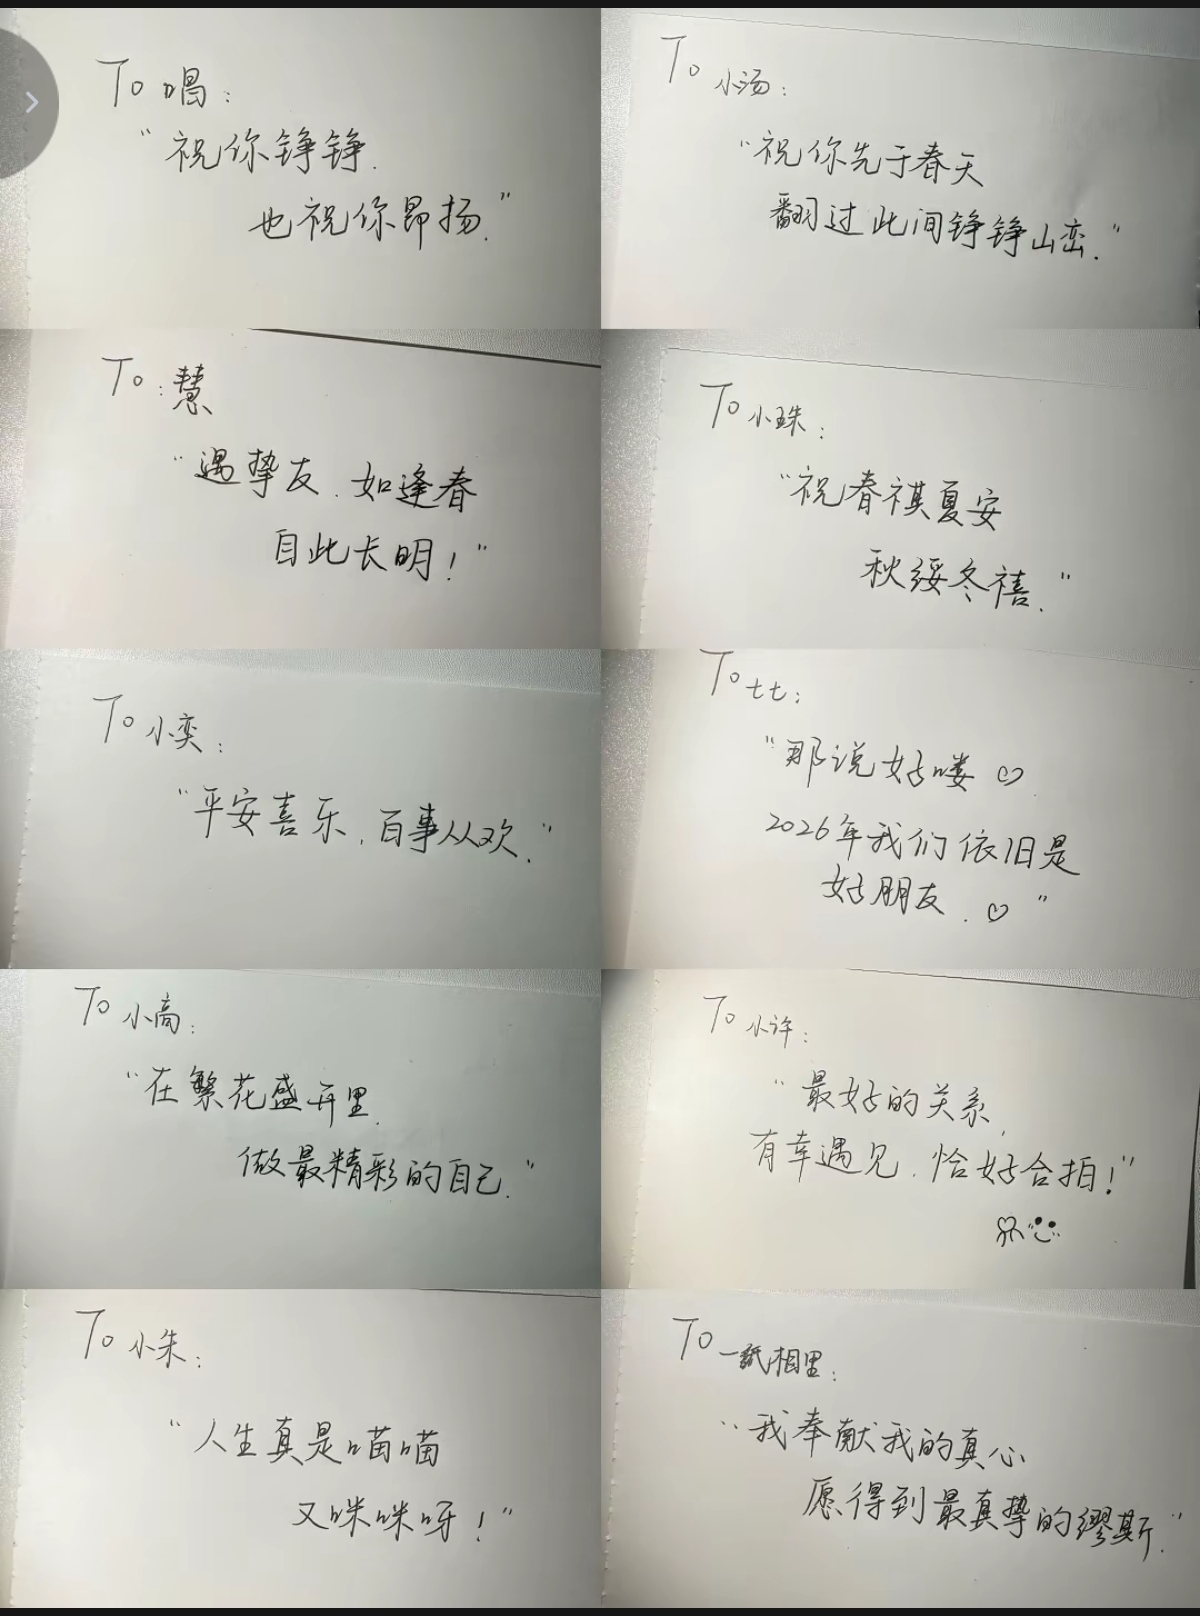 To 唱:
"祝你铮铮.
也祝你昂扬."
To 小汤:
"祝你先于春天
翻过此间铮铮山峦."
To:慧
"遇挚友.如逢春
自此长明!"
To 小珠:
"祝春祺夏安
秋绥冬禧."
To 小奕:
"平安喜乐,百事从欢."
To 七七:
"那说好喽♡.
2026年我们依旧是
好朋友.♡"
To 小高:
"在繁花盛开里.
做最精彩的自己."
To 小许:
"最好的关系,
有幸遇见.恰好合拍!"
To 小朱:
"人生真是喵喵
又咪咪呀!"
To 一纸相里:
"我奉献我的真心
愿得到最真挚的缪斯."